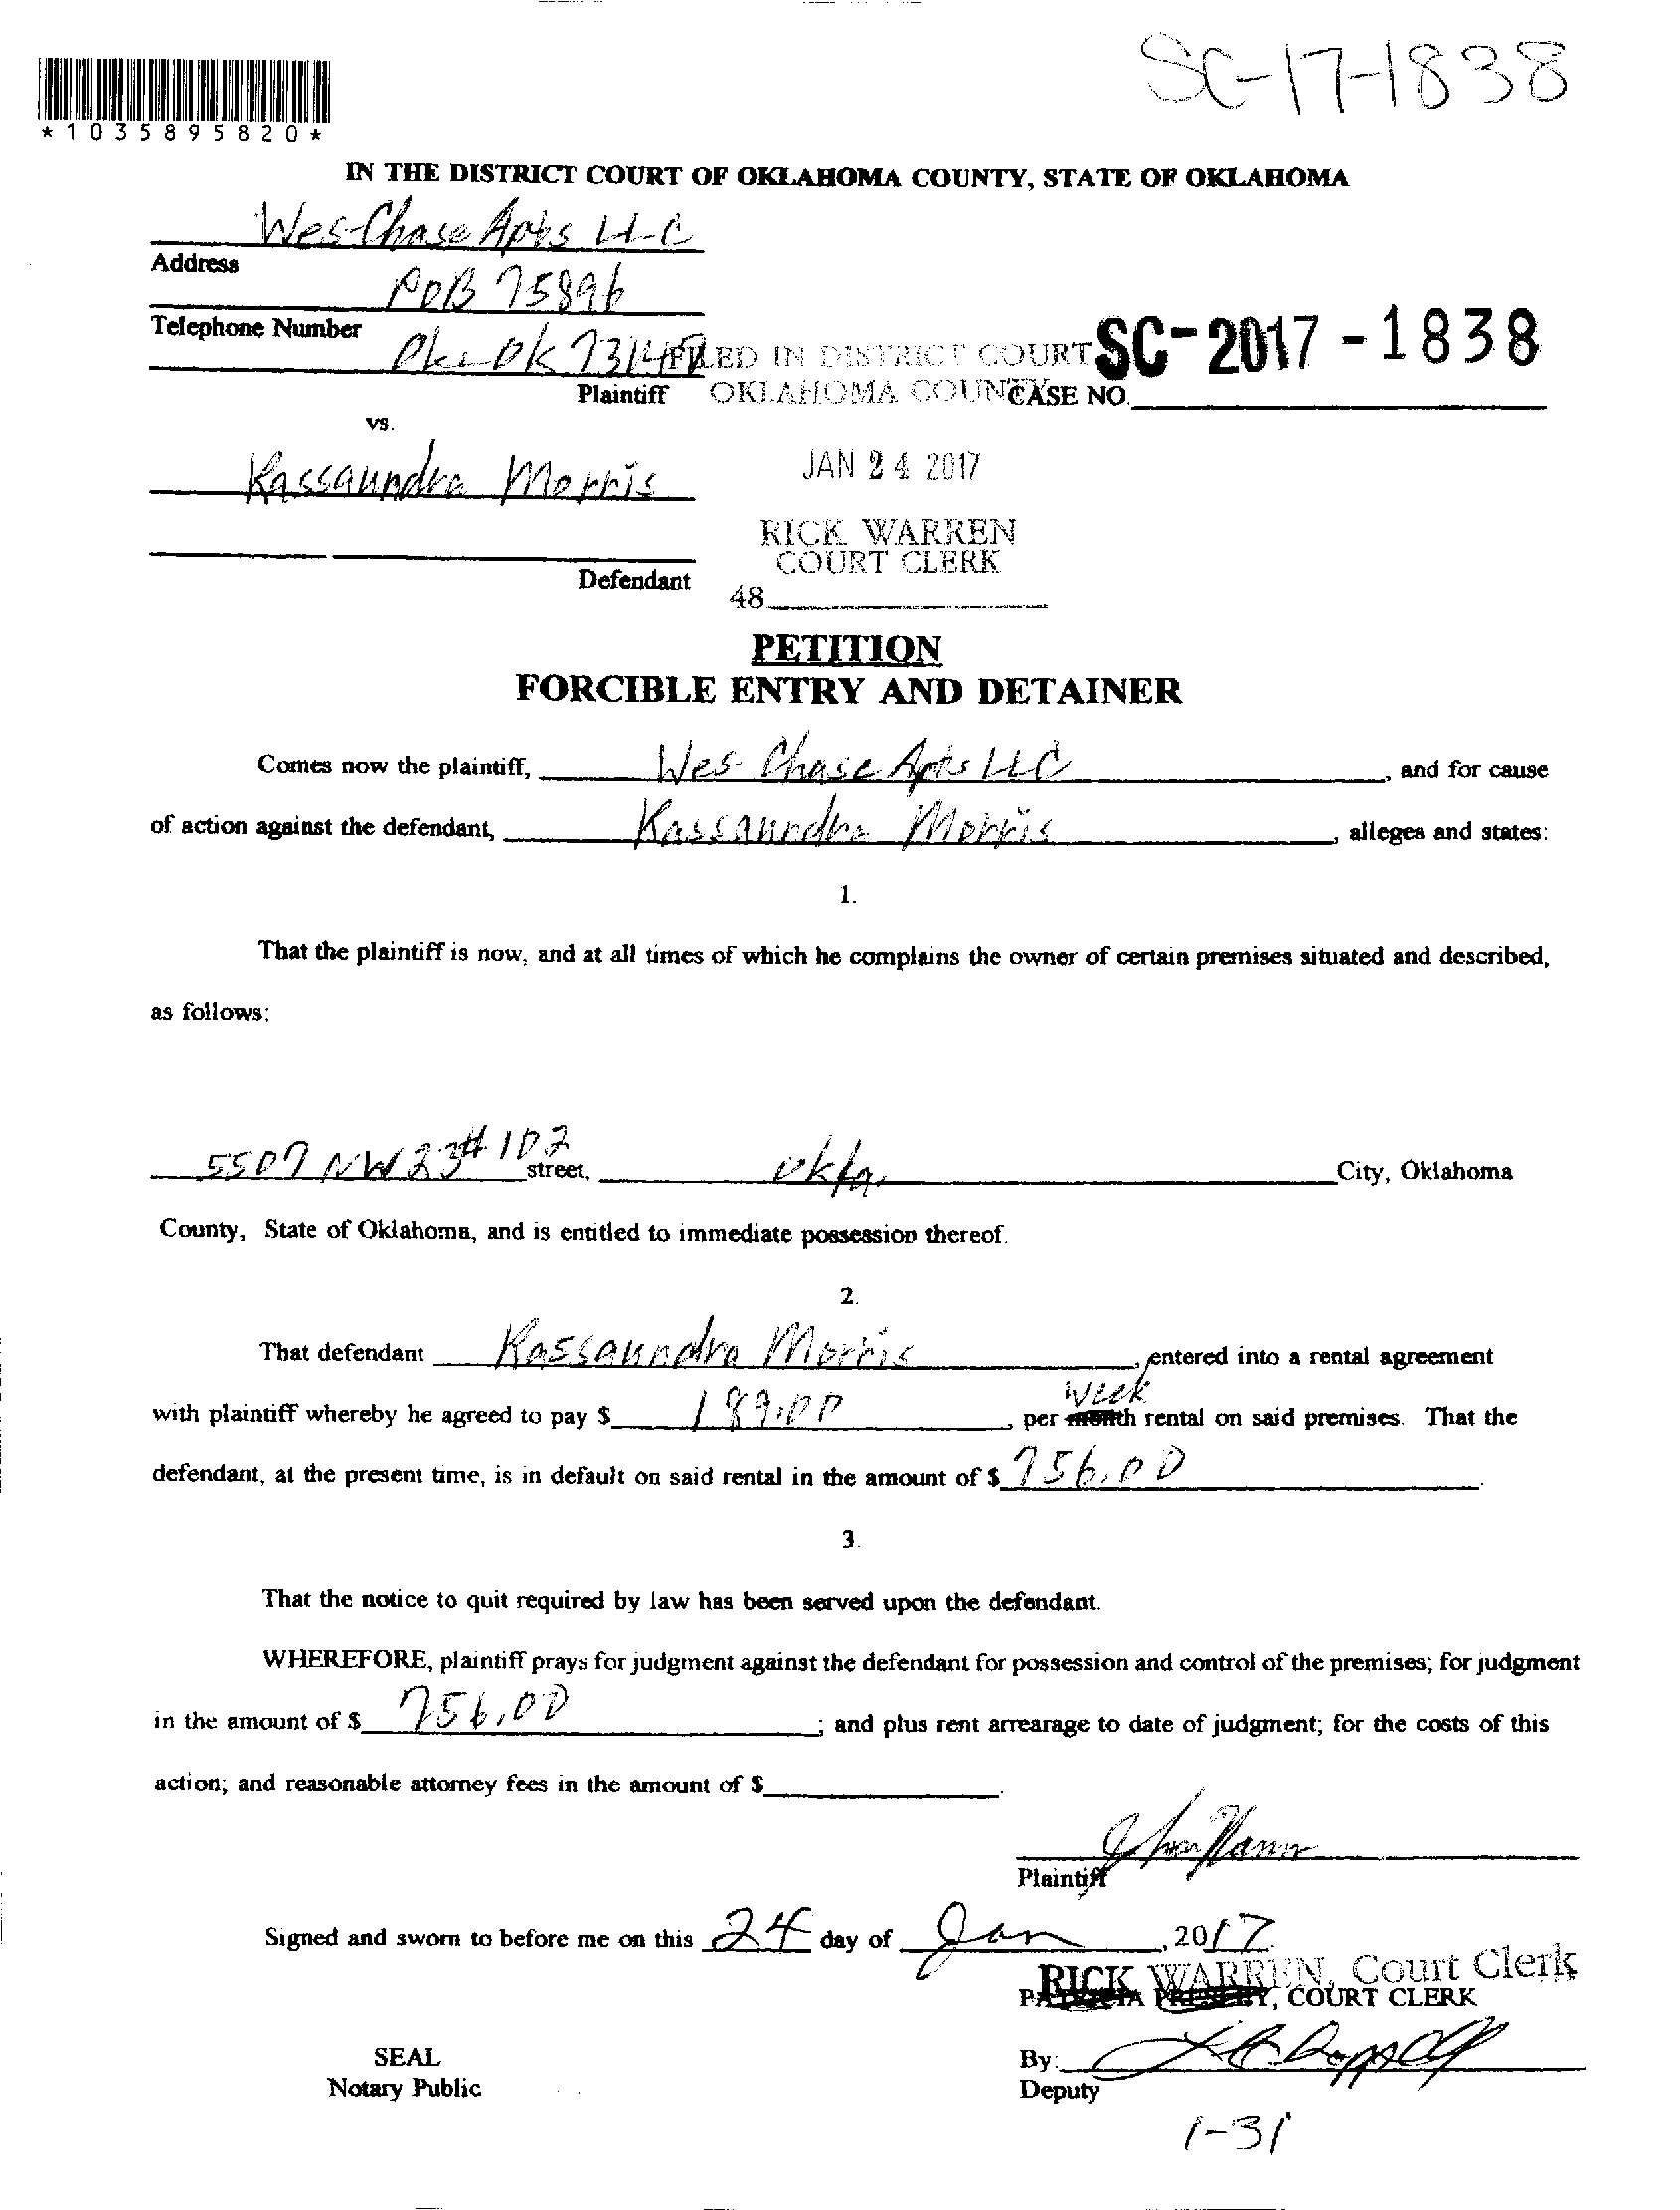 SC-17-1838
*1035895820*
IN THE DISTRICT COURT OF OKLAHOMA COUNTY, STATE OF OKLAHOMA
Wes Chase Apts LLC
Address
POB 75896
Telephone Number
Okc OK 73147
FILED IN DISTRICT COURT
OKLAHOMA COUNTY
SC-2017-1838
Plaintiff
CASE NO.
vs.
Kassaundra Morris
JAN 24 2017
RICK WARREN
COURT CLERK
Defendant
48
PETITION
FORCIBLE ENTRY AND DETAINER
Comes now the plaintiff, Wes Chase Apts LLC, and for cause
of action against the defendant, Kassaundra Morris, alleges and states:
1.
That the plaintiff is now, and at all times of which he complains the owner of certain premises situated and described,
as follows:
5507 NW 23 #102 street, Okla. City, Oklahoma
County, State of Oklahoma, and is entitled to immediate possession thereof.
2.
That defendant Kassaundra Morris, entered into a rental agreement
week
with plaintiff whereby he agreed to pay $ 189.00, per month rental on said premises. That the
defendant, at the present time, is in default on said rental in the amount of $ 756.00.
3.
That the notice to quit required by law has been served upon the defendant.
WHEREFORE, plaintiff prays for judgment against the defendant for possession and control of the premises; for judgment
in the amount of $ 756.00; and plus rent arrearage to date of judgment; for the costs of this
action; and reasonable attorney fees in the amount of $
Plaintiff
Signed and sworn to before me on this 24 day of Jan, 2017.
RICK WARREN, Court Clerk
PATRICIA PRESLEY, COURT CLERK
SEAL
By:
Notary Public
Deputy
1-31